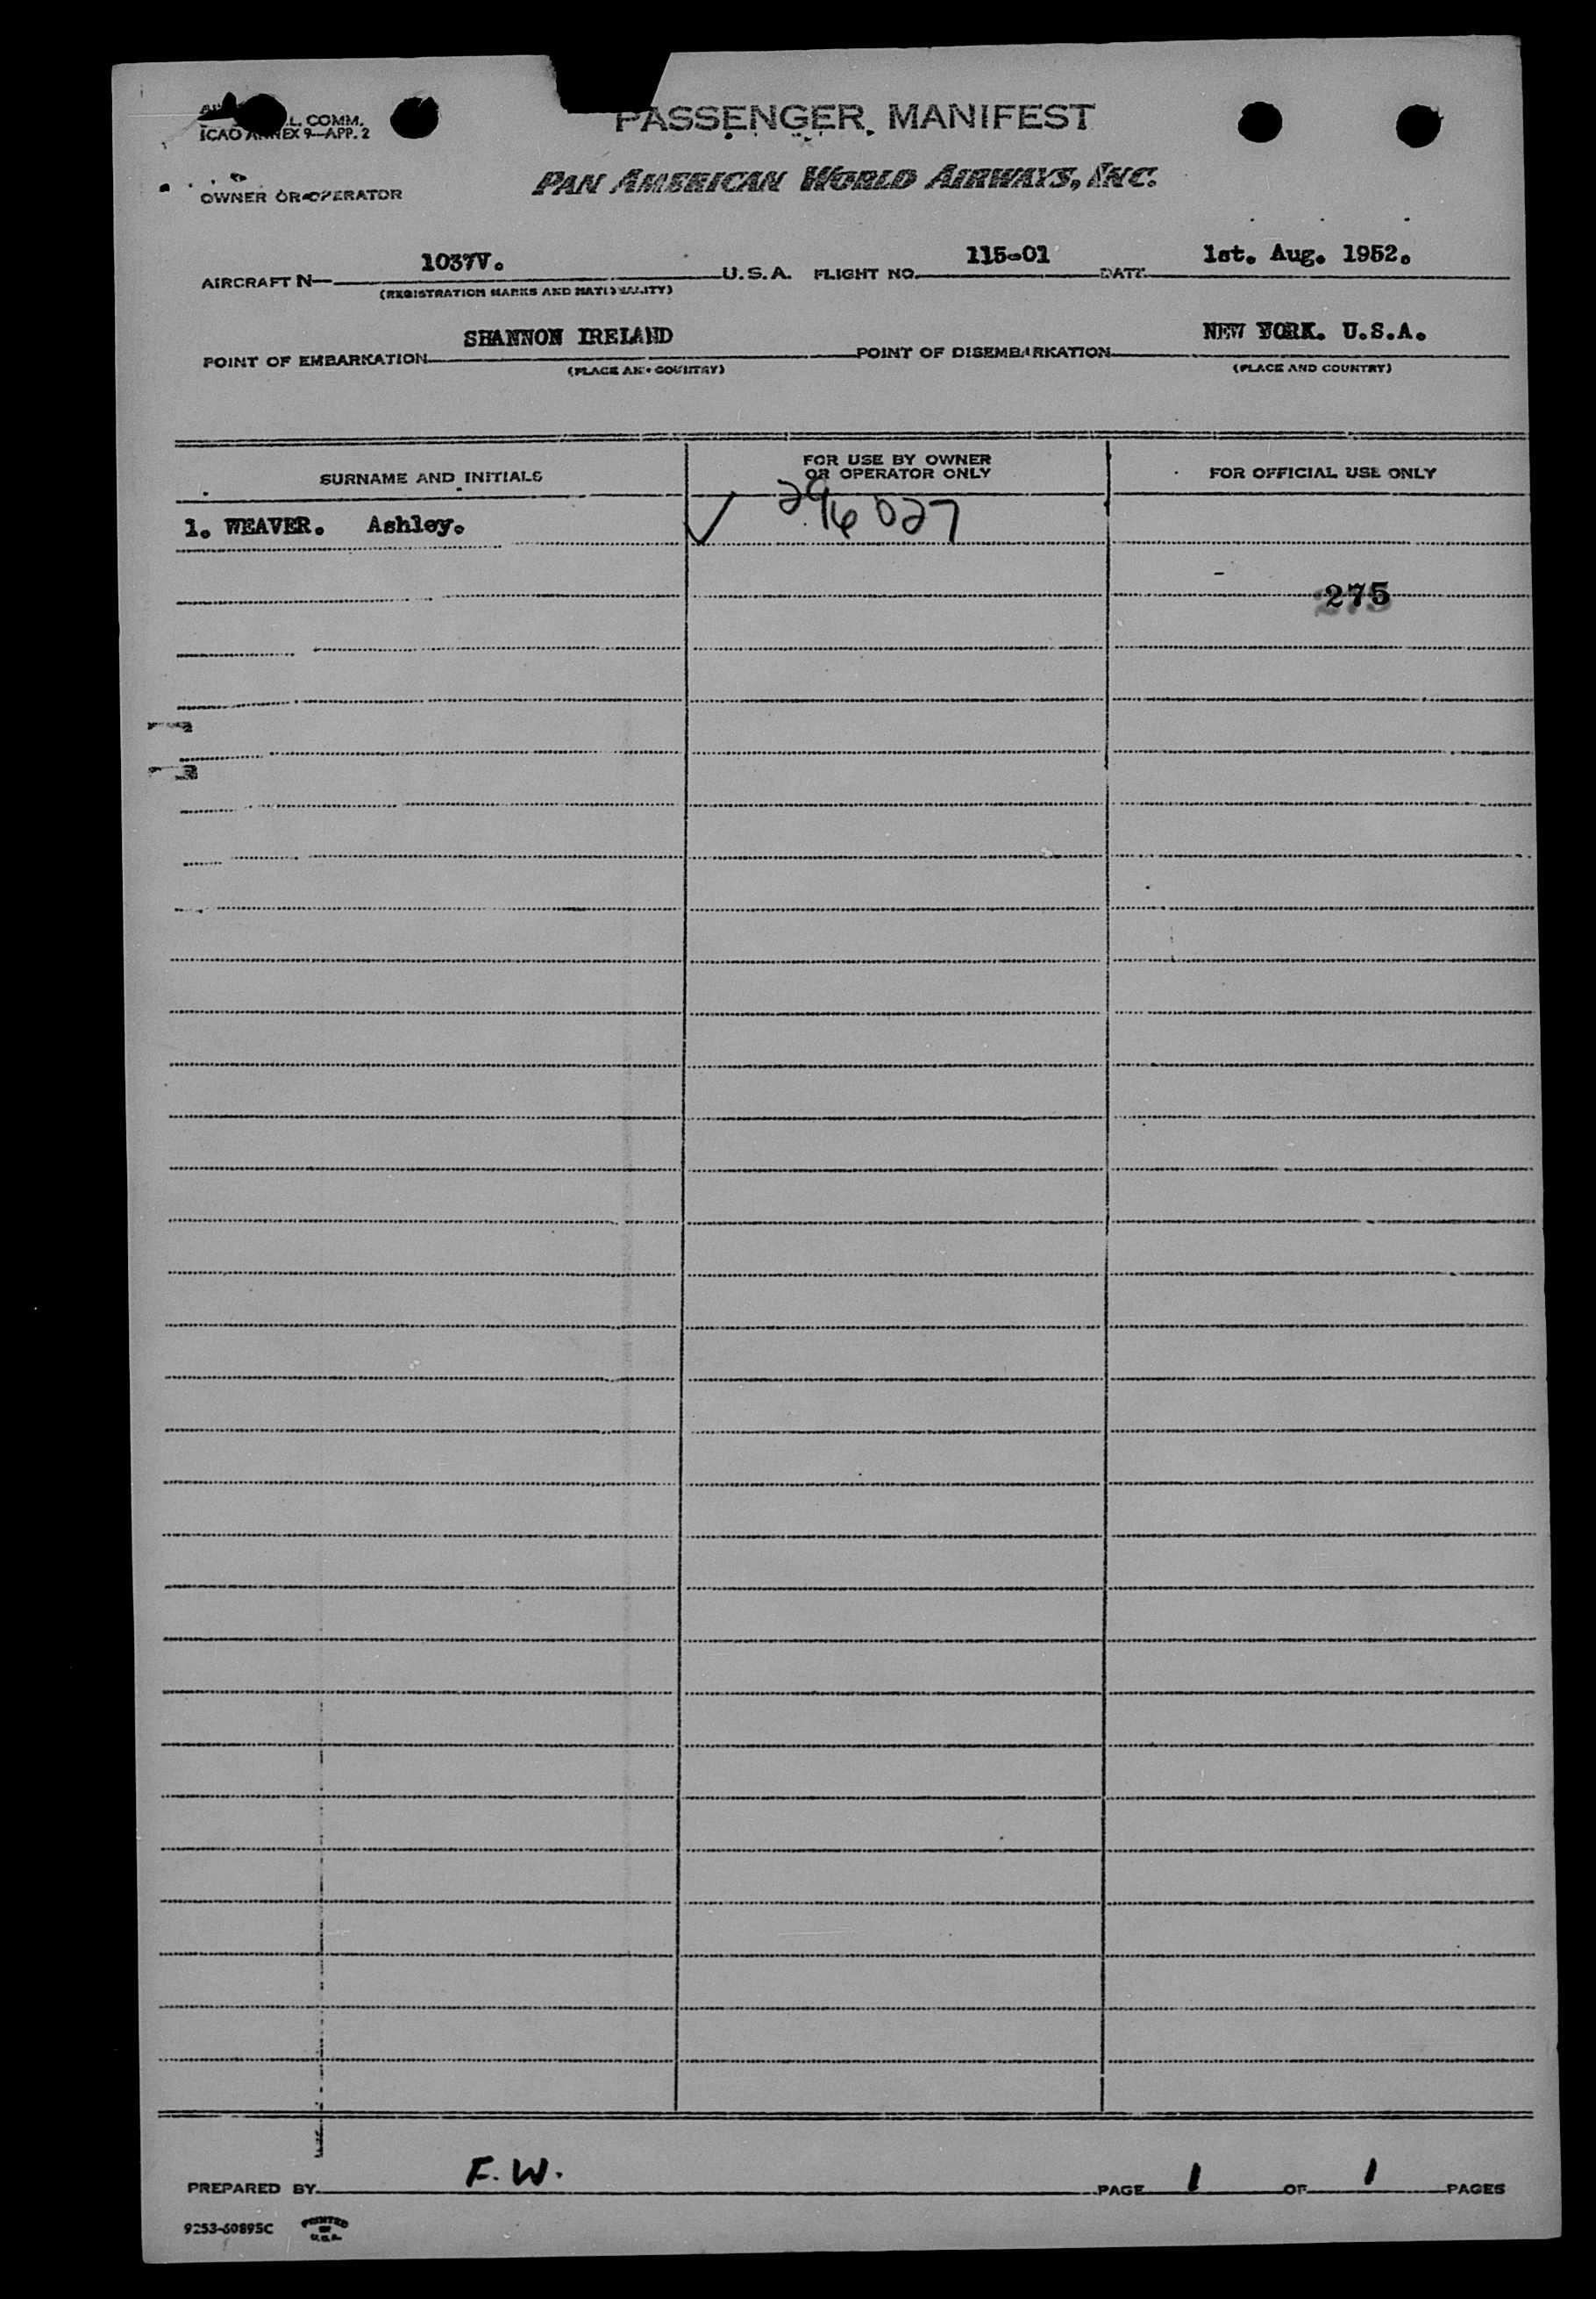 L. COMM.
ICAO ANNEX 9—APP. 2
PASSENGER MANIFEST
OWNER OR OPERATOR
PAN AMERICAN WORLD AIRWAYS, INC.
AIRCRAFT N— 1037V. U.S.A. FLIGHT NO. 115-01 DATE 1st. Aug. 1952.
(REGISTRATION MARKS AND NATIONALITY)
POINT OF EMBARKATION SHANNON IRELAND POINT OF DISEMBARKATION NEW YORK. U.S.A.
(PLACE AND COUNTRY) (PLACE AND COUNTRY)
SURNAME AND INITIALS FOR USE BY OWNER OR OPERATOR ONLY FOR OFFICIAL USE ONLY
1. WEAVER. Ashley. ✓ 296027
275
PREPARED BY F.W. PAGE 1 OF 1 PAGES
9253-60895C PRINTED IN U.S.A.